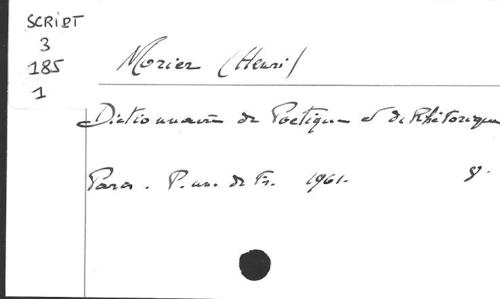 SCRIPT
3
185
1
Morier (Henri)
Dictionnaire de Poétique et de Rhétorique
Paris. P. un. de Fr. 1961. 8°.